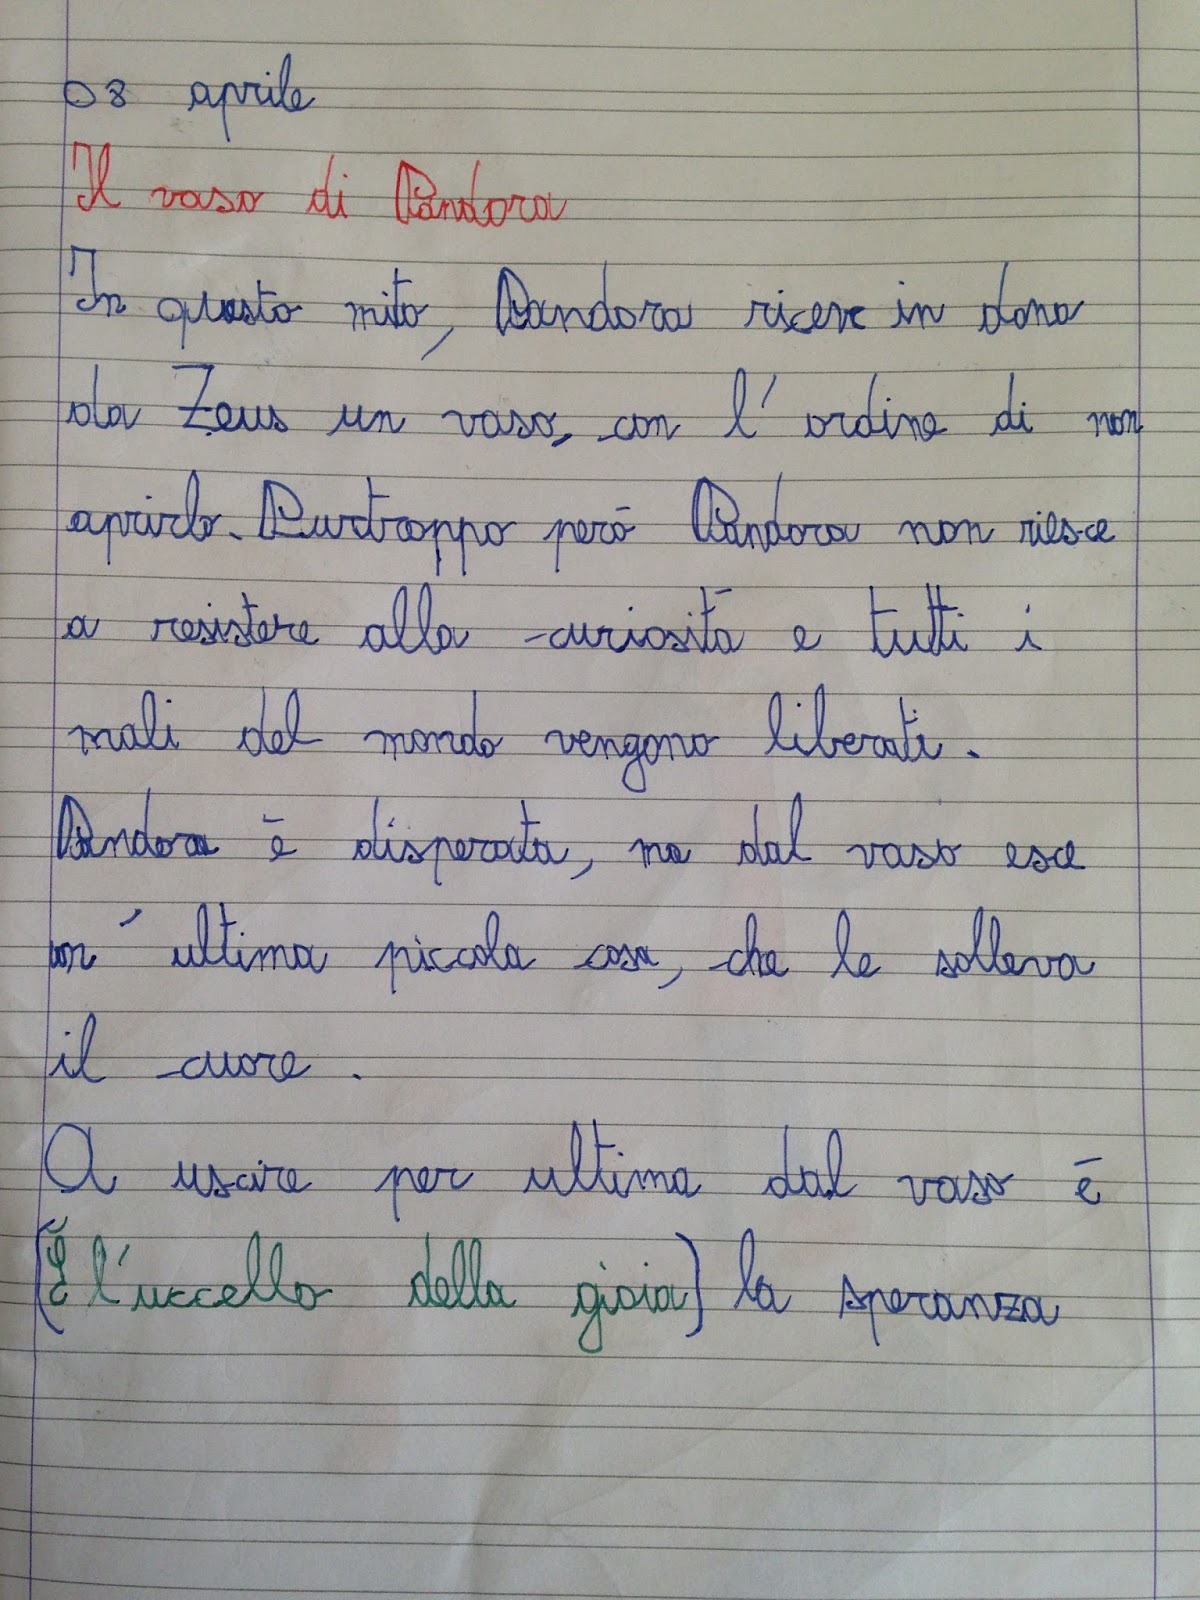 08 aprile
Il vaso di Pandora
In questo mito, Pandora riceve in dono
da Zeus un vaso, con l'ordine di non
aprirlo. Purtroppo però Pandora non riesce
a resistere alla curiosità e tutti i
mali del mondo vengono liberati.
Pandora è disperata, ma dal vaso esce
un' ultima piccola cosa, che le solleva
il cuore.
A uscire per ultima dal vaso è
(È l'uccello della gioia) la speranza